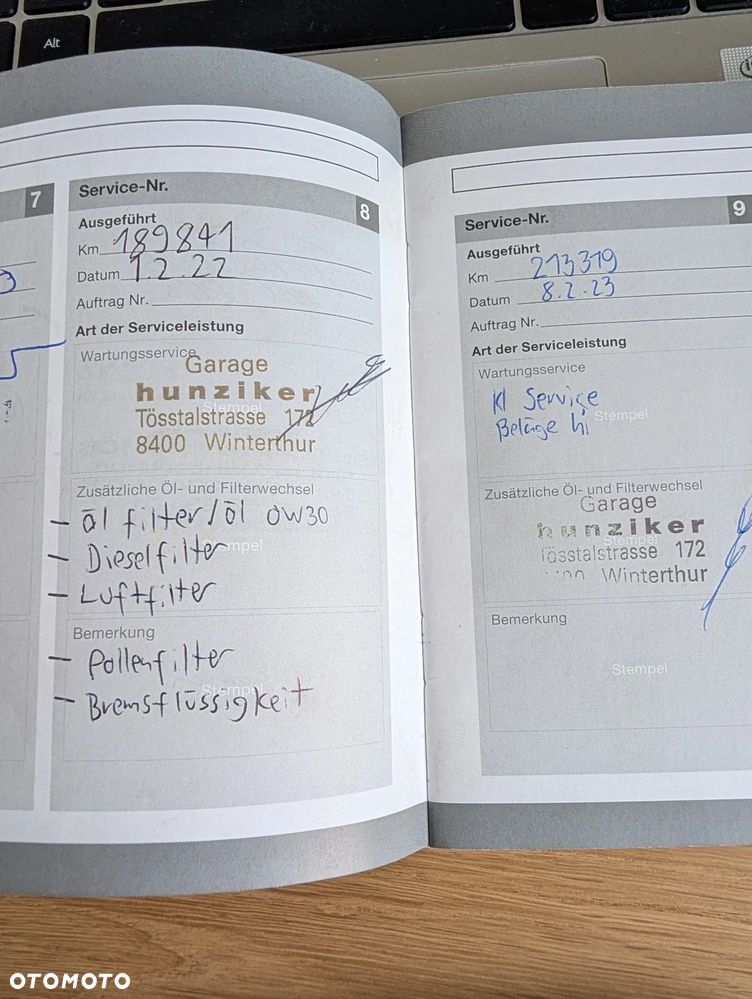 Alt
7
Service-Nr.
8
Ausgeführt
Km 189841
Datum 1.2.22
Auftrag Nr.
Art der Serviceleistung
Wartungsservice
Garage
hunziker
Stempel
Tösstalstrasse 172
8400 Winterthur
Zusätzliche Öl- und Filterwechsel
- öl filter/öl 0W30
- Dieselfilter
Stempel
- Luftfilter
Bemerkung
- Pollenfilter
Stempel
- Bremsflüssigkeit
Service-Nr.
9
Ausgeführt
Km 213319
Datum 8.2.23
Auftrag Nr.
Art der Serviceleistung
Wartungsservice
Kl Service
Stempel
Beläge hi
Zusätzliche Öl- und Filterwechsel
Garage
hunziker
Stempel
Tösstalstrasse 172
Winterthur
Bemerkung
Stempel
OTOMOTO